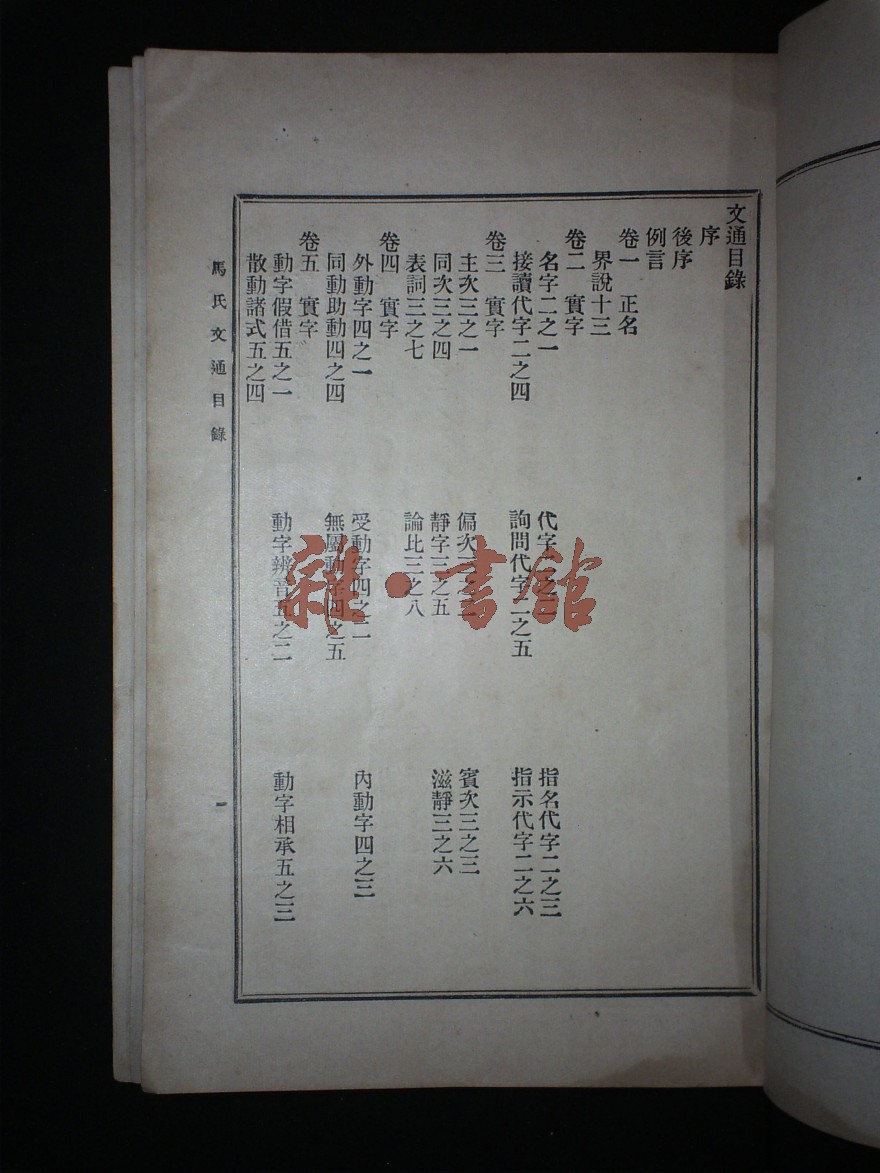 文通目錄
序
後序
例言
卷一 正名
界說十三
卷二 實字
名字二之一 代字二之二 指名代字二之三
接讀代字二之四 詢問代字二之五 指示代字二之六
卷三 實字
主次三之一 偏次三之二 賓次三之三
同次三之四 靜字三之五 滋靜三之六
表詞三之七 論比三之八
卷四 實字
外動字四之一 受動字四之二 內動字四之三
同動助動四之四 無屬動字四之五
卷五 實字
動字假借五之一 動字辨音五之二 動字相承五之三
散動諸式五之四
馬氏文通目錄
一
雜·書館